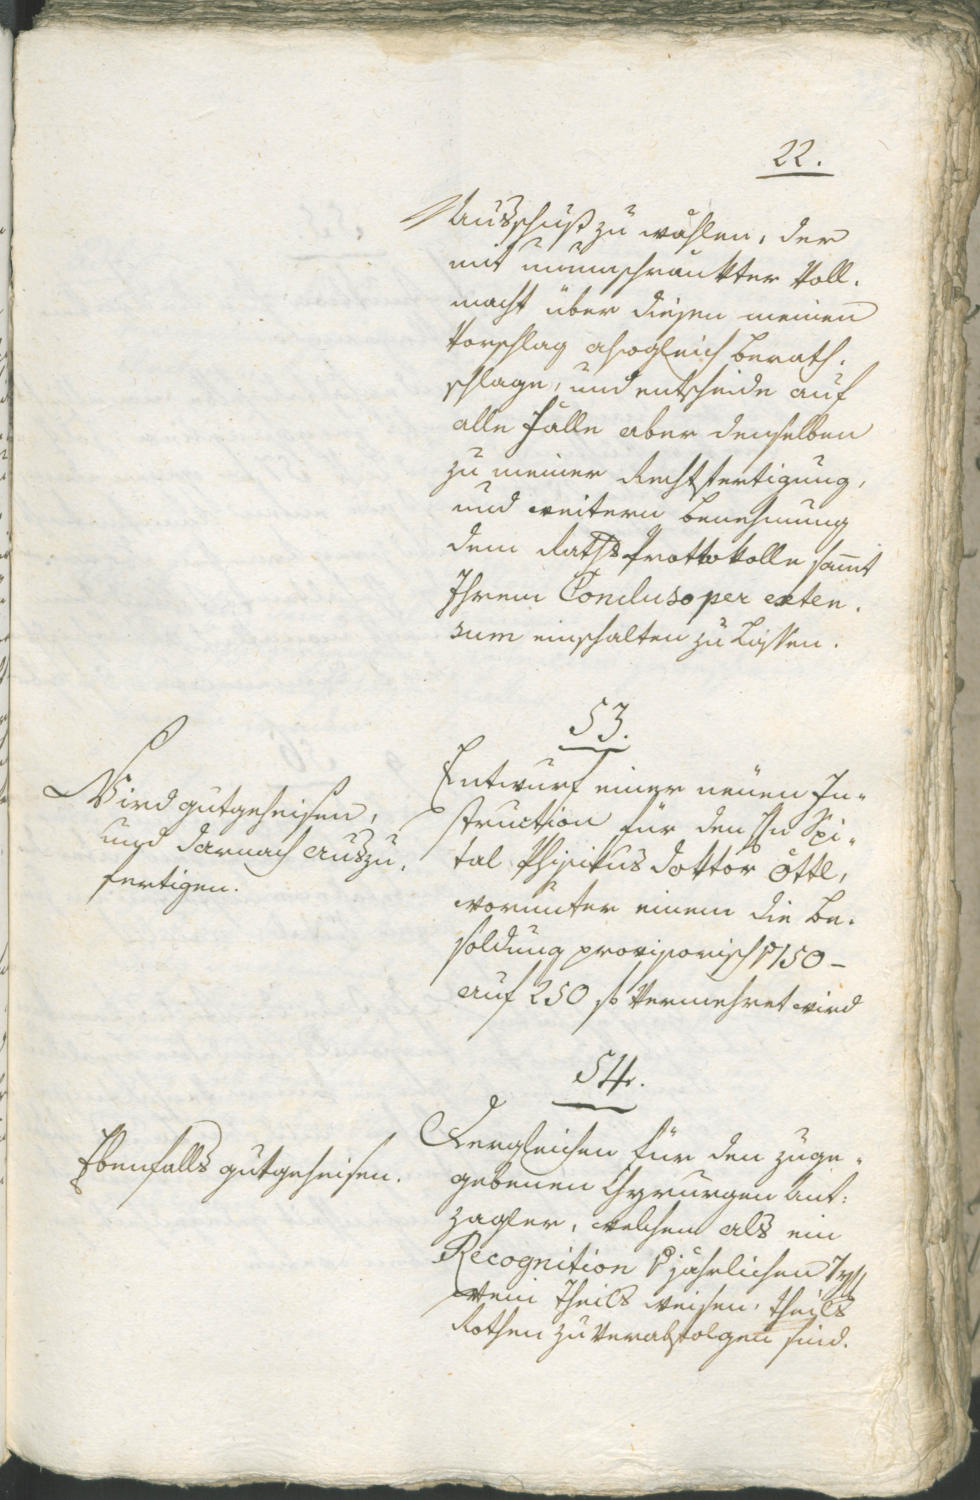 22.
Ausschuß zu wählen, der
mit unumschränkter Voll,
macht über diesen meinen
Vorschlag alsogleich berath,
schlage, und entscheide auf
alle Fälle aber denselben
zu meiner Rechtsfertigung,
und weitern Benehmung
dem Raths Prottokolle sam̄t
Ihrem Concluso per exten,
sum einschalten zu lassen.
53.
Wird gutgeheisen,
und darnach auszu,
fertigen.
Entwurf einer neüen In„
struction für den Hn Spi„
tal Phisikus Doktor Öttl,
worunter einem die Be,
soldung provisorisch P 150 –
auf 250 f. vermehret wird
54.
Ebenfalls gutgeheisen.
Dergleichen für den zuge„
gebenen Chyrurgen Ant:
Zagler, welchem als ein
Recognition P jährlichen 7
Wein theils weisen, theils
Rothen zu verabfolgen sind.